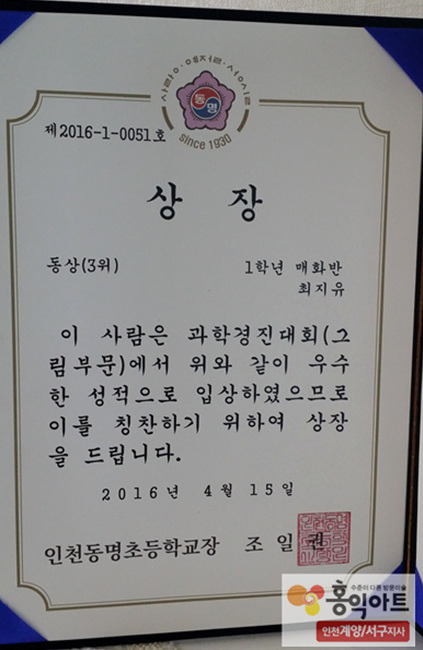 사랑·예절·성실
동명
since 1930
제2016-1-0051호
상 장
동상(3위)
1학년 매화반
최지유
이 사람은 과학경진대회(그
림부문)에서 위와 같이 우수
한 성적으로 입상하였으므로
이를 칭찬하기 위하여 상장
을 드립니다.
2016년 4월 15일
인천동명초등학교장 조 일 권
수준이 다른 방문미술
홍익아트
인천계양/서구지사